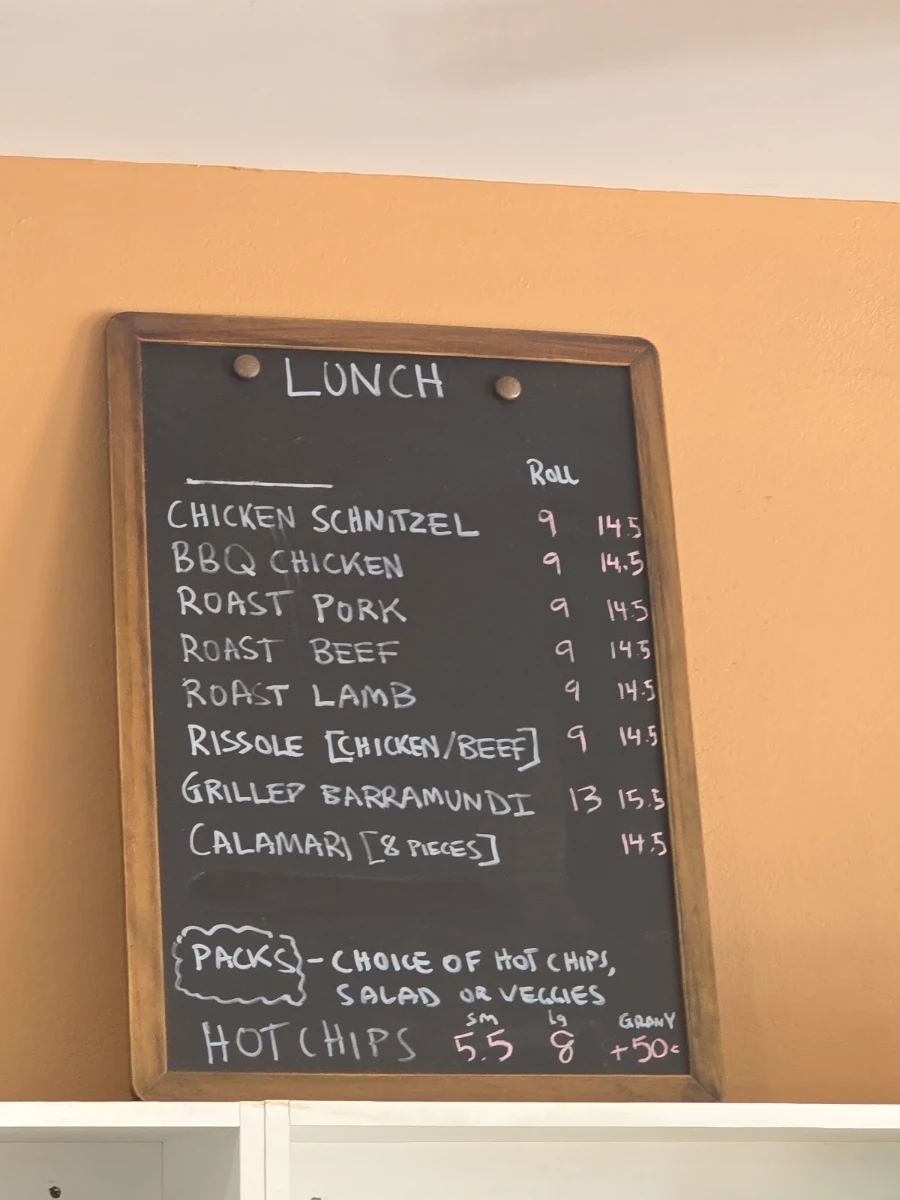 LUNCH
Roll
CHICKEN SCHNITZEL 9 14.5
BBQ CHICKEN 9 14.5
ROAST PORK 9 14.5
ROAST BEEF 9 14.5
ROAST LAMB 9 14.5
RISSOLE [CHICKEN/BEEF] 9 14.5
GRILLED BARRAMUNDI 13 15.5
CALAMARI [8 PIECES] 14.5
PACKS - CHOICE OF HOT CHIPS,
SALAD OR VEGGIES
sm lg GRAVY
HOT CHIPS 5.5 8 +50c